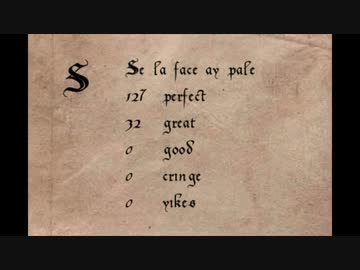 S
Se la face ay pale
127 perfect
32 great
0 good
0 cringe
0 yikes